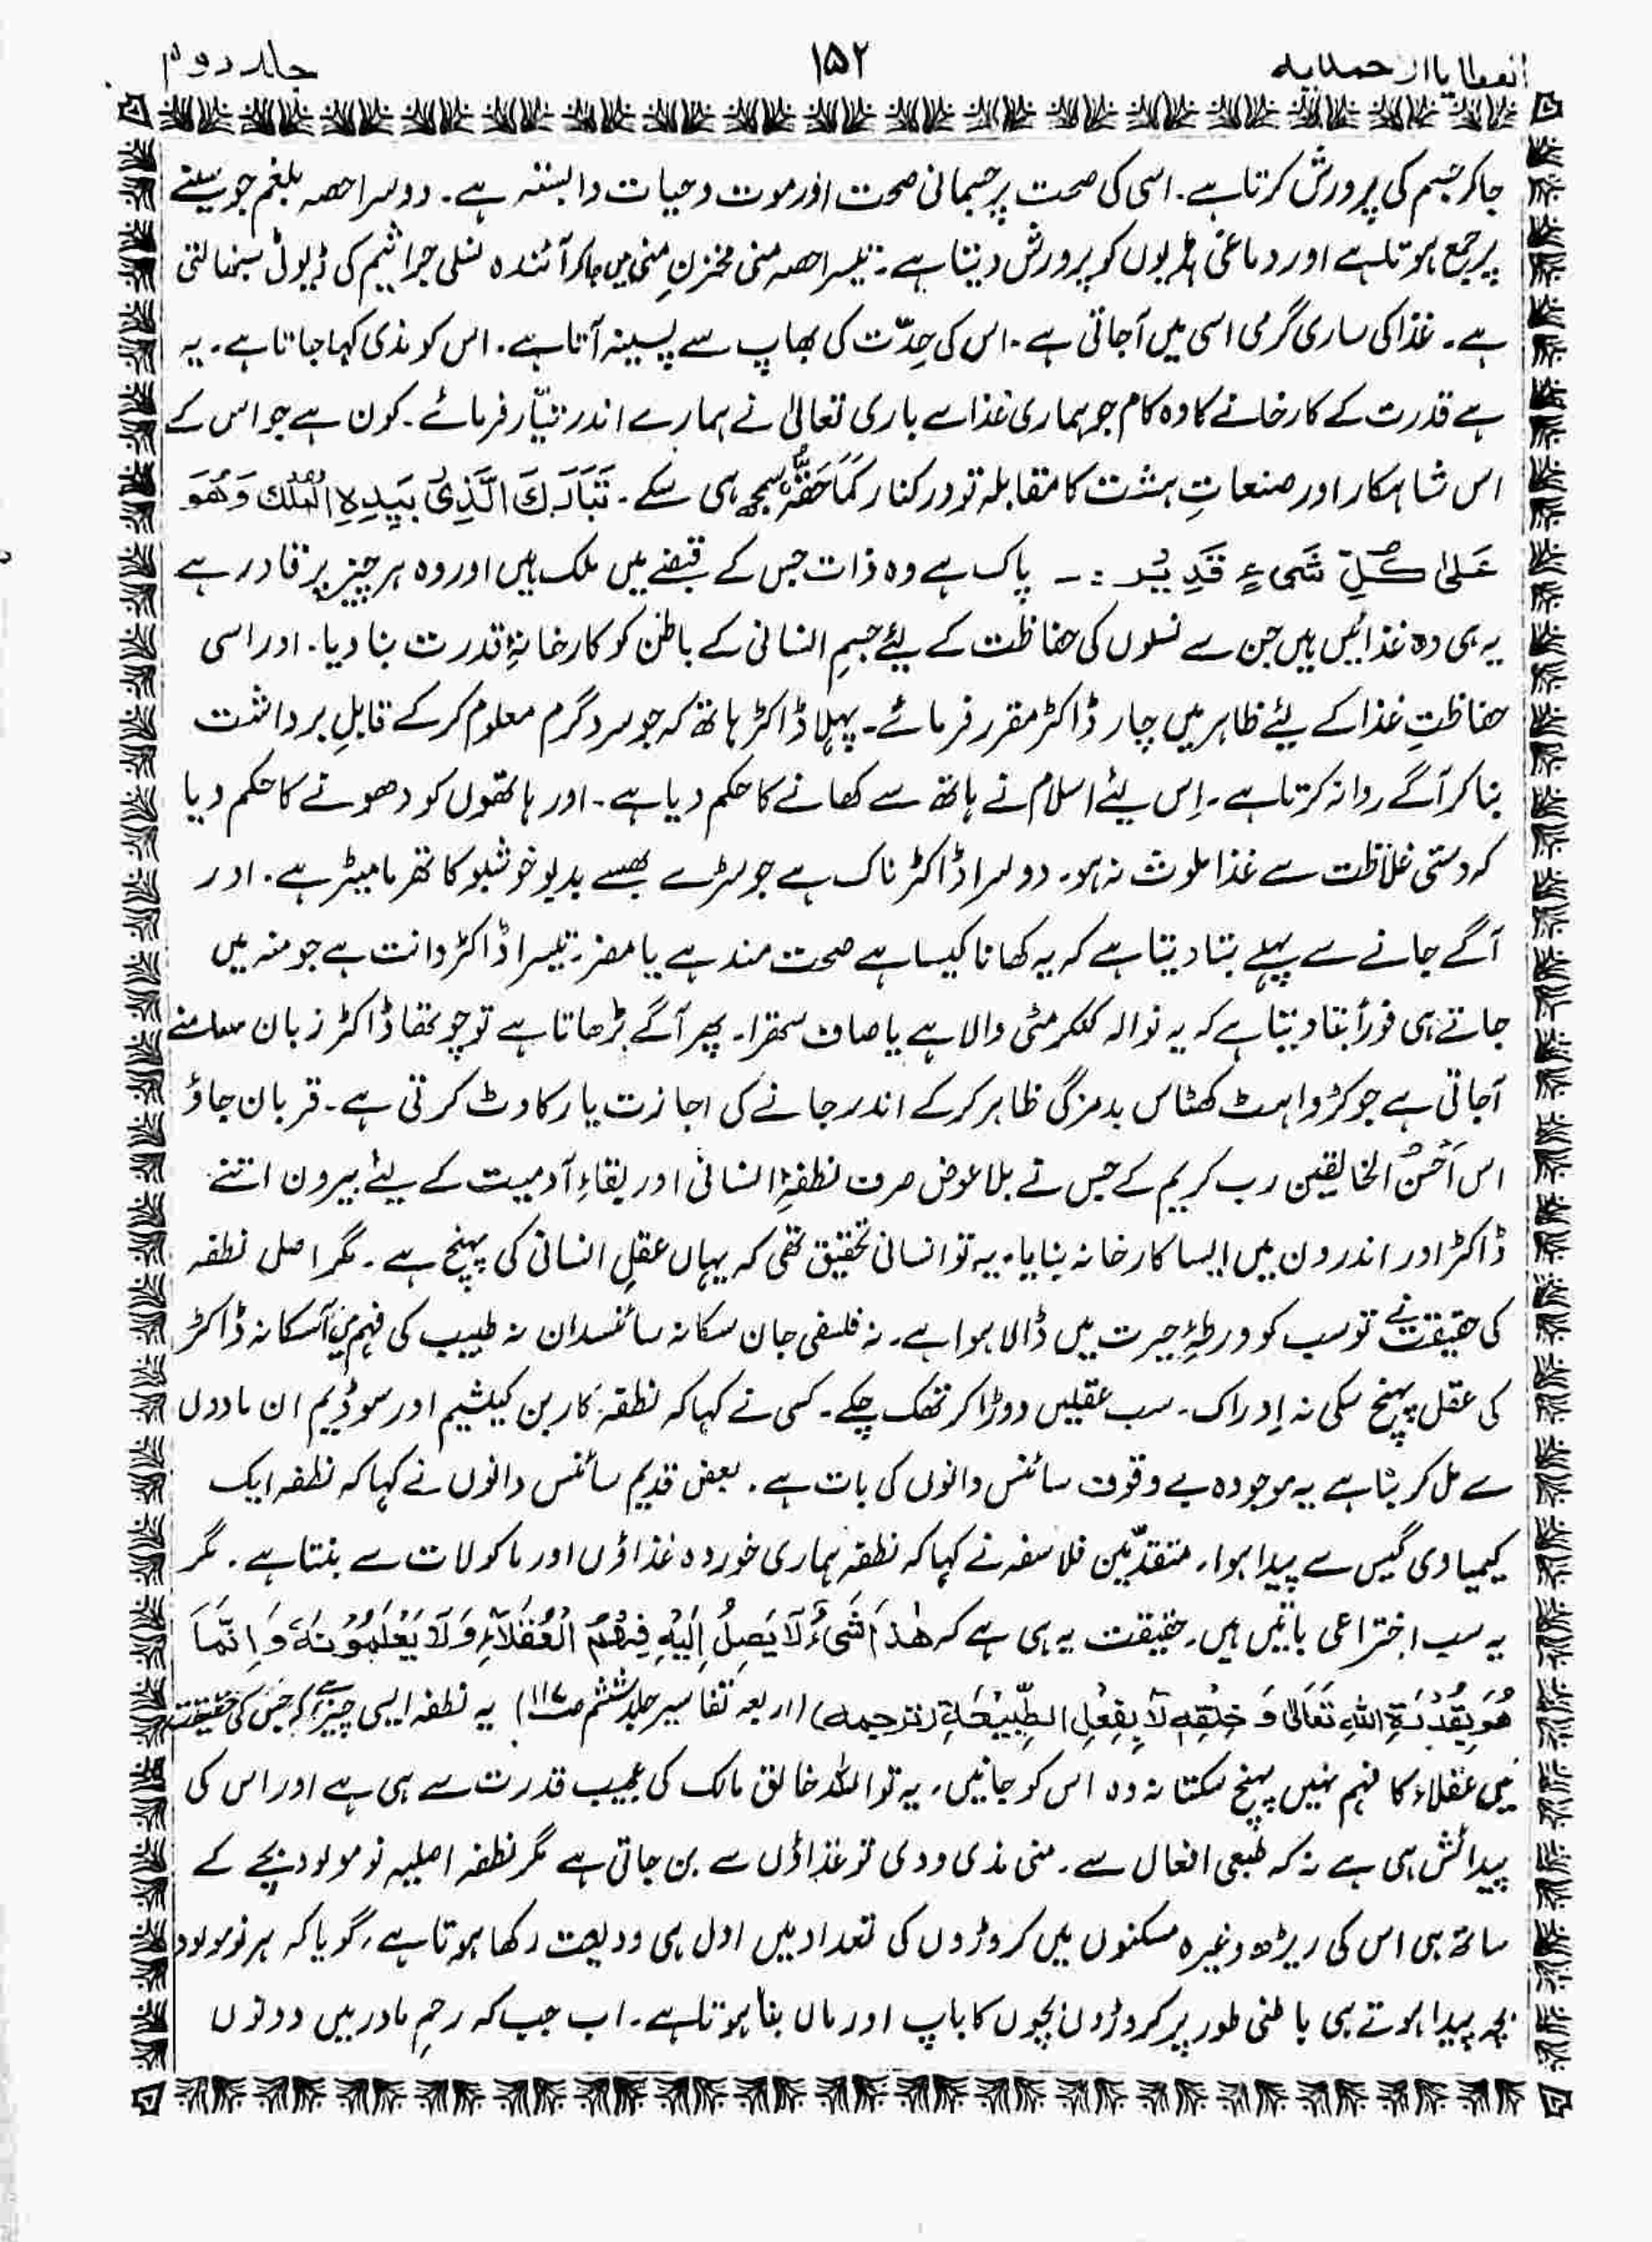 العطایا الاحمدیہ ۱۵۲ جلد دوم
جا کر جسم کی پرورش کرتا ہے۔ اسی کی صحت پر جسمانی صحت اور موت وحیات وابستہ ہے۔ دوسرا حصہ بلغم جو سینے
پر جمع ہوتا ہے اور دماغی ہڈیوں کو پرورش دیتا ہے۔ تیسرا حصہ منی مخزنِ منی میں جا کر آئندہ نسلی جراثیم کی ڈیوٹی سنبھالتی
ہے۔ غذا کی ساری گرمی اسی میں آجاتی ہے۔ اس کی حِدّت کی بھاپ سے پسینہ آتا ہے۔ اس کو مذی کہا جاتا ہے۔ یہ
ہے قدرت کے کارخانے کا وہ کام جو ہماری غذا سے باری تعالیٰ نے ہمارے اندر تیّار فرمائے۔ کون ہے جو اس کے
اس شاہکار اور صنعاتِ ہشت کا مقابلہ تو درکنار کَمَا حَقُّہٗ سمجھ ہی سکے۔ تَبَارَکَ الَّذِیْ بِیَدِہِ الْمُلْکُ وَھُوَ
عَلیٰ کُلِّ شَیْءٍ قَدِیْرٌ :۔ پاک ہے وہ ذات جس کے قبضے میں ملک ہیں اور وہ ہر چیز پر قادر ہے
یہ ہی وہ غذائیں ہیں جن سے نسلوں کی حفاظت کے لیئے جسمِ انسانی کے باطن کو کارخانۂِ قدرت بنا دیا۔ اور اسی
حفاظتِ غذا کے لیئے ظاہر میں چار ڈاکٹر مقرر فرمائے۔ پہلا ڈاکٹر ہاتھ کہ جو سرد گرم معلوم کر کے قابلِ برداشت
بنا کر آگے روانہ کرتا ہے۔ اِس لیئے اسلام نے ہاتھ سے کھانے کا حکم دیا ہے۔ اور ہاتھوں کو دھونے کا حکم دیا
کہ دستی غلاظت سے غذا ملوث نہ ہو۔ دوسرا ڈاکٹر ناک ہے جو سڑے بھسے بدبو خوشبو کا تھرمامیٹر ہے۔ اور
آگے جانے سے پہلے بتا دیتا ہے کہ یہ کھانا کیسا ہے صحت مند ہے یا مضر۔ تیسرا ڈاکٹر دانت ہے جو منہ میں
جاتے ہی فوراً بتا دیتا ہے کہ یہ نوالہ کنکر مٹی والا ہے یا صاف ستھرا۔ پھر آگے بڑھاتا ہے تو چوتھا ڈاکٹر زبان سامنے
آجاتی ہے جو کڑواہٹ کھٹاس بدمزگی ظاہر کر کے اندر جانے کی اجازت یا رکاوٹ کرتی ہے۔ قربان جاؤ
اس اَحْسَنُ الخالقین رب کریم کے جس نے بلا عوض صرف نطفۂِ انسانی اور بقاءِ آدمیت کے لیئے بیرون اتنے
ڈاکٹر اور اندرون میں ایسا کارخانہ بنایا۔ یہ تو انسانی تحقیق تھی کہ یہاں عقلِ انسانی کی پہنچ ہے۔ مگر اصل نطفہ
کی حقیقت نے تو سب کو ورطۂِ حیرت میں ڈالا ہوا ہے۔ نہ فلسفی جان سکا نہ سائنسدان نہ طبیب کی فہم میں آسکا نہ ڈاکٹر
کی عقل پہنچ سکی نہ اِدراک۔ سب عقلیں دوڑا کر تھک چکے۔ کسی نے کہا کہ نطفہ کاربن کیلشیم اور سوڈیم ان مادوں
سے مل کر بنا ہے یہ موجودہ بے وقوف سائنس دانوں کی بات ہے۔ بعض قدیم سائنس دانوں نے کہا کہ نطفہ ایک
کیمیاوی گیس سے پیدا ہوا۔ متقدّمین فلاسفہ نے کہا کہ نطفہ ہماری خوردہ غذاؤں اور ماکولات سے بنتا ہے۔ مگر
یہ سب اختراعی باتیں ہیں۔ حقیقت یہ ہی ہے کہ ھٰذَا شَیْءٌ لَا یَصِلُ اِلَیْہِ فِہْمُ الْعُقَلَاءِ وَلَا یَعْلَمُوْنَہٗ وَاِنَّمَا
ھُوَ بِقُدْرَۃِ اللّٰہِ تَعَالٰی وَ خَلْقِہٖ لَا بِفِعْلِ الطَّبِیْعَۃِ (ترجمہ) (اربعہ تفاسیر جلد ششم صـ۱۱۷) یہ نطفہ ایسی چیز ہے کہ جس کی حقیقت
میں عقلاء کا فہم نہیں پہنچ سکتا نہ وہ اس کو جانیں۔ یہ تو اللہ خالق مالک کی عجیب قدرت سے ہی ہے اور اس کی
پیدائش ہی ہے نہ کہ طبعی افعال سے۔ منی مذی ودی تو غذاؤں سے بن جاتی ہے مگر نطفہ اصلیہ نومولود بچے کے
ساتھ ہی اس کی ریڑھ وغیرہ مسکنوں میں کروڑوں کی تعداد میں اول ہی ودیعت رکھا ہوتا ہے، گویا کہ ہر نومولود
بچہ پیدا ہوتے ہی باطنی طور پر کروڑوں بچوں کا باپ اور ماں بنا ہوتا ہے۔ اب جب کہ رحمِ مادر میں دونوں